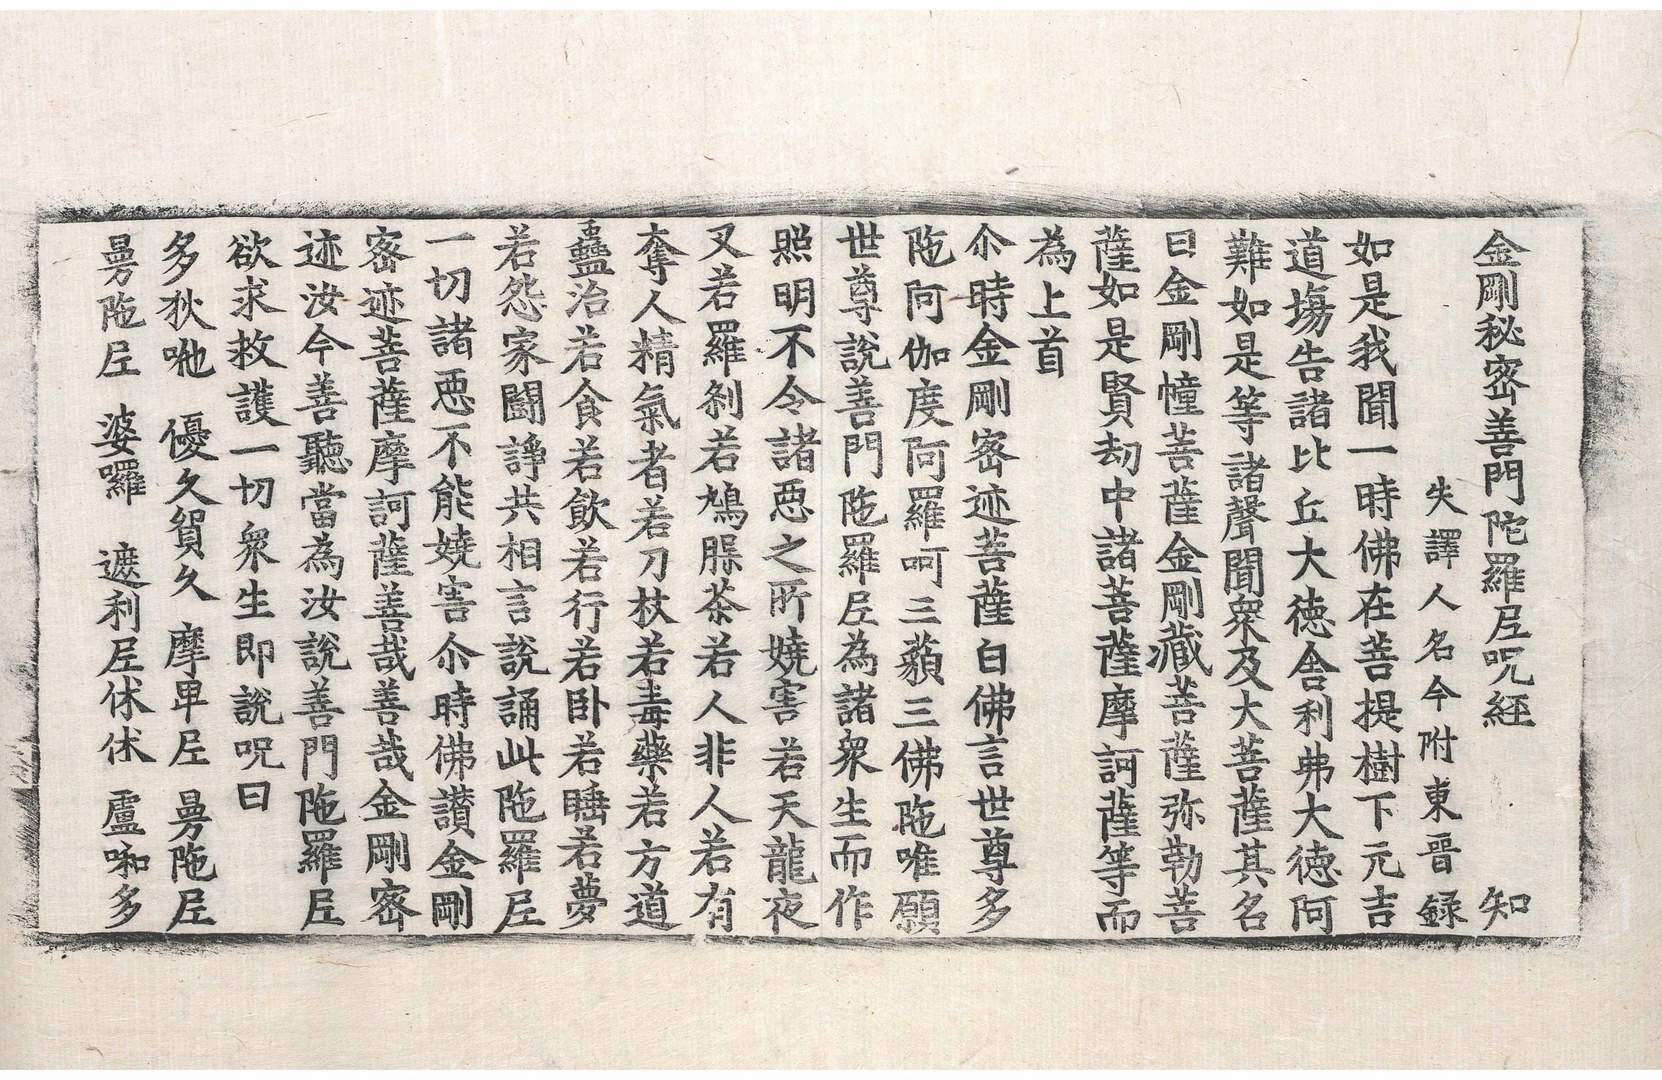 金剛秘密善門陀羅尼呪經 知
失譯人名今附東晉錄
如是我聞一時佛在菩提樹下元吉
道塲告諸比丘大德舍利弗大德阿
難如是等諸聲聞衆及大菩薩其名
曰金剛幢菩薩金剛藏菩薩弥勒菩
薩如是賢劫中諸菩薩摩訶薩等而
為上首
尒時金剛密迹菩薩白佛言世尊多
陁阿伽度阿羅呵三藐三佛陁唯願
世尊說善門陁羅尼為諸衆生而作
照明不令諸惡之所嬈害若天龍夜
叉若羅刹若鳩槃茶若人非人若有
奪人精氣者若刀杖若毒藥若方道
蠱治若食若飲若行若卧若睡若夢
若怨家鬪諍共相言說誦此陁羅尼
一切諸惡不能嬈害尒時佛讚金剛
密迹菩薩摩訶薩善哉善哉金剛密
迹汝今善聽當為汝說善門陁羅尼
欲求救護一切衆生即說呪曰
多狄呬 優久賀久 摩卑尼 曼陁尼
曼陁尼 婆囉 遮利尼休休 盧啝多